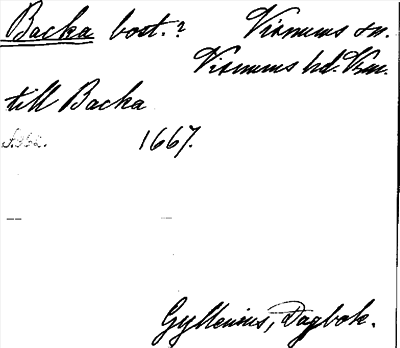 Backa bost.? Visnums sn.
Visnums hd. Vrm.
till Backa
1667.
Gyllenius, Dagbok.